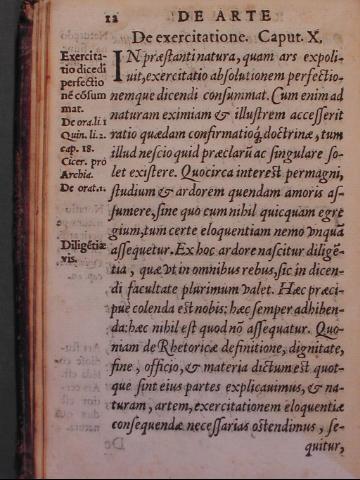 12 DE ARTE
De exercitatione. Caput. X.
Exercita-
tio dicēdi
perfectio
nē cōsum
mat.
De ora.li.1
Quin. li.2.
cap. 18.
Cicer. prò
Archia.
De orat.1.
Diligētiæ
vis.
IN præstanti natura, quam ars expoli-
uit, exercitatio absolutionem perfectio-
nemque dicendi consummat. Cum enim ad
naturam eximiam & illustrem accesserit
ratio quædam confirmatioq́; doctrinæ, tum
illud nescio quid præclarū ac singulare so-
let existere. Quocirca interest permagni,
studium & ardorem quendam amoris as-
sumere, sine quo cum nihil quicquam egre
gium, tum certe eloquentiam nemo vnquā
assequetur. Ex hoc ardore nascitur diligē-
tia, quæ vt in omnibus rebus, sic in dicen-
di facultate plurimum valet. Hæc præci-
puè colenda est nobis: hæc semper adhiben-
da: hæc nihil est quod nō assequatur. Quo-
niam de Rhetoricæ definitione, dignitate,
fine, officio, & materia dictum est quot-
que sint eius partes explicauimus, & na-
turam, artem, exercitationem eloquentiæ
consequendæ necessarias ostendimus, se-
quitur,